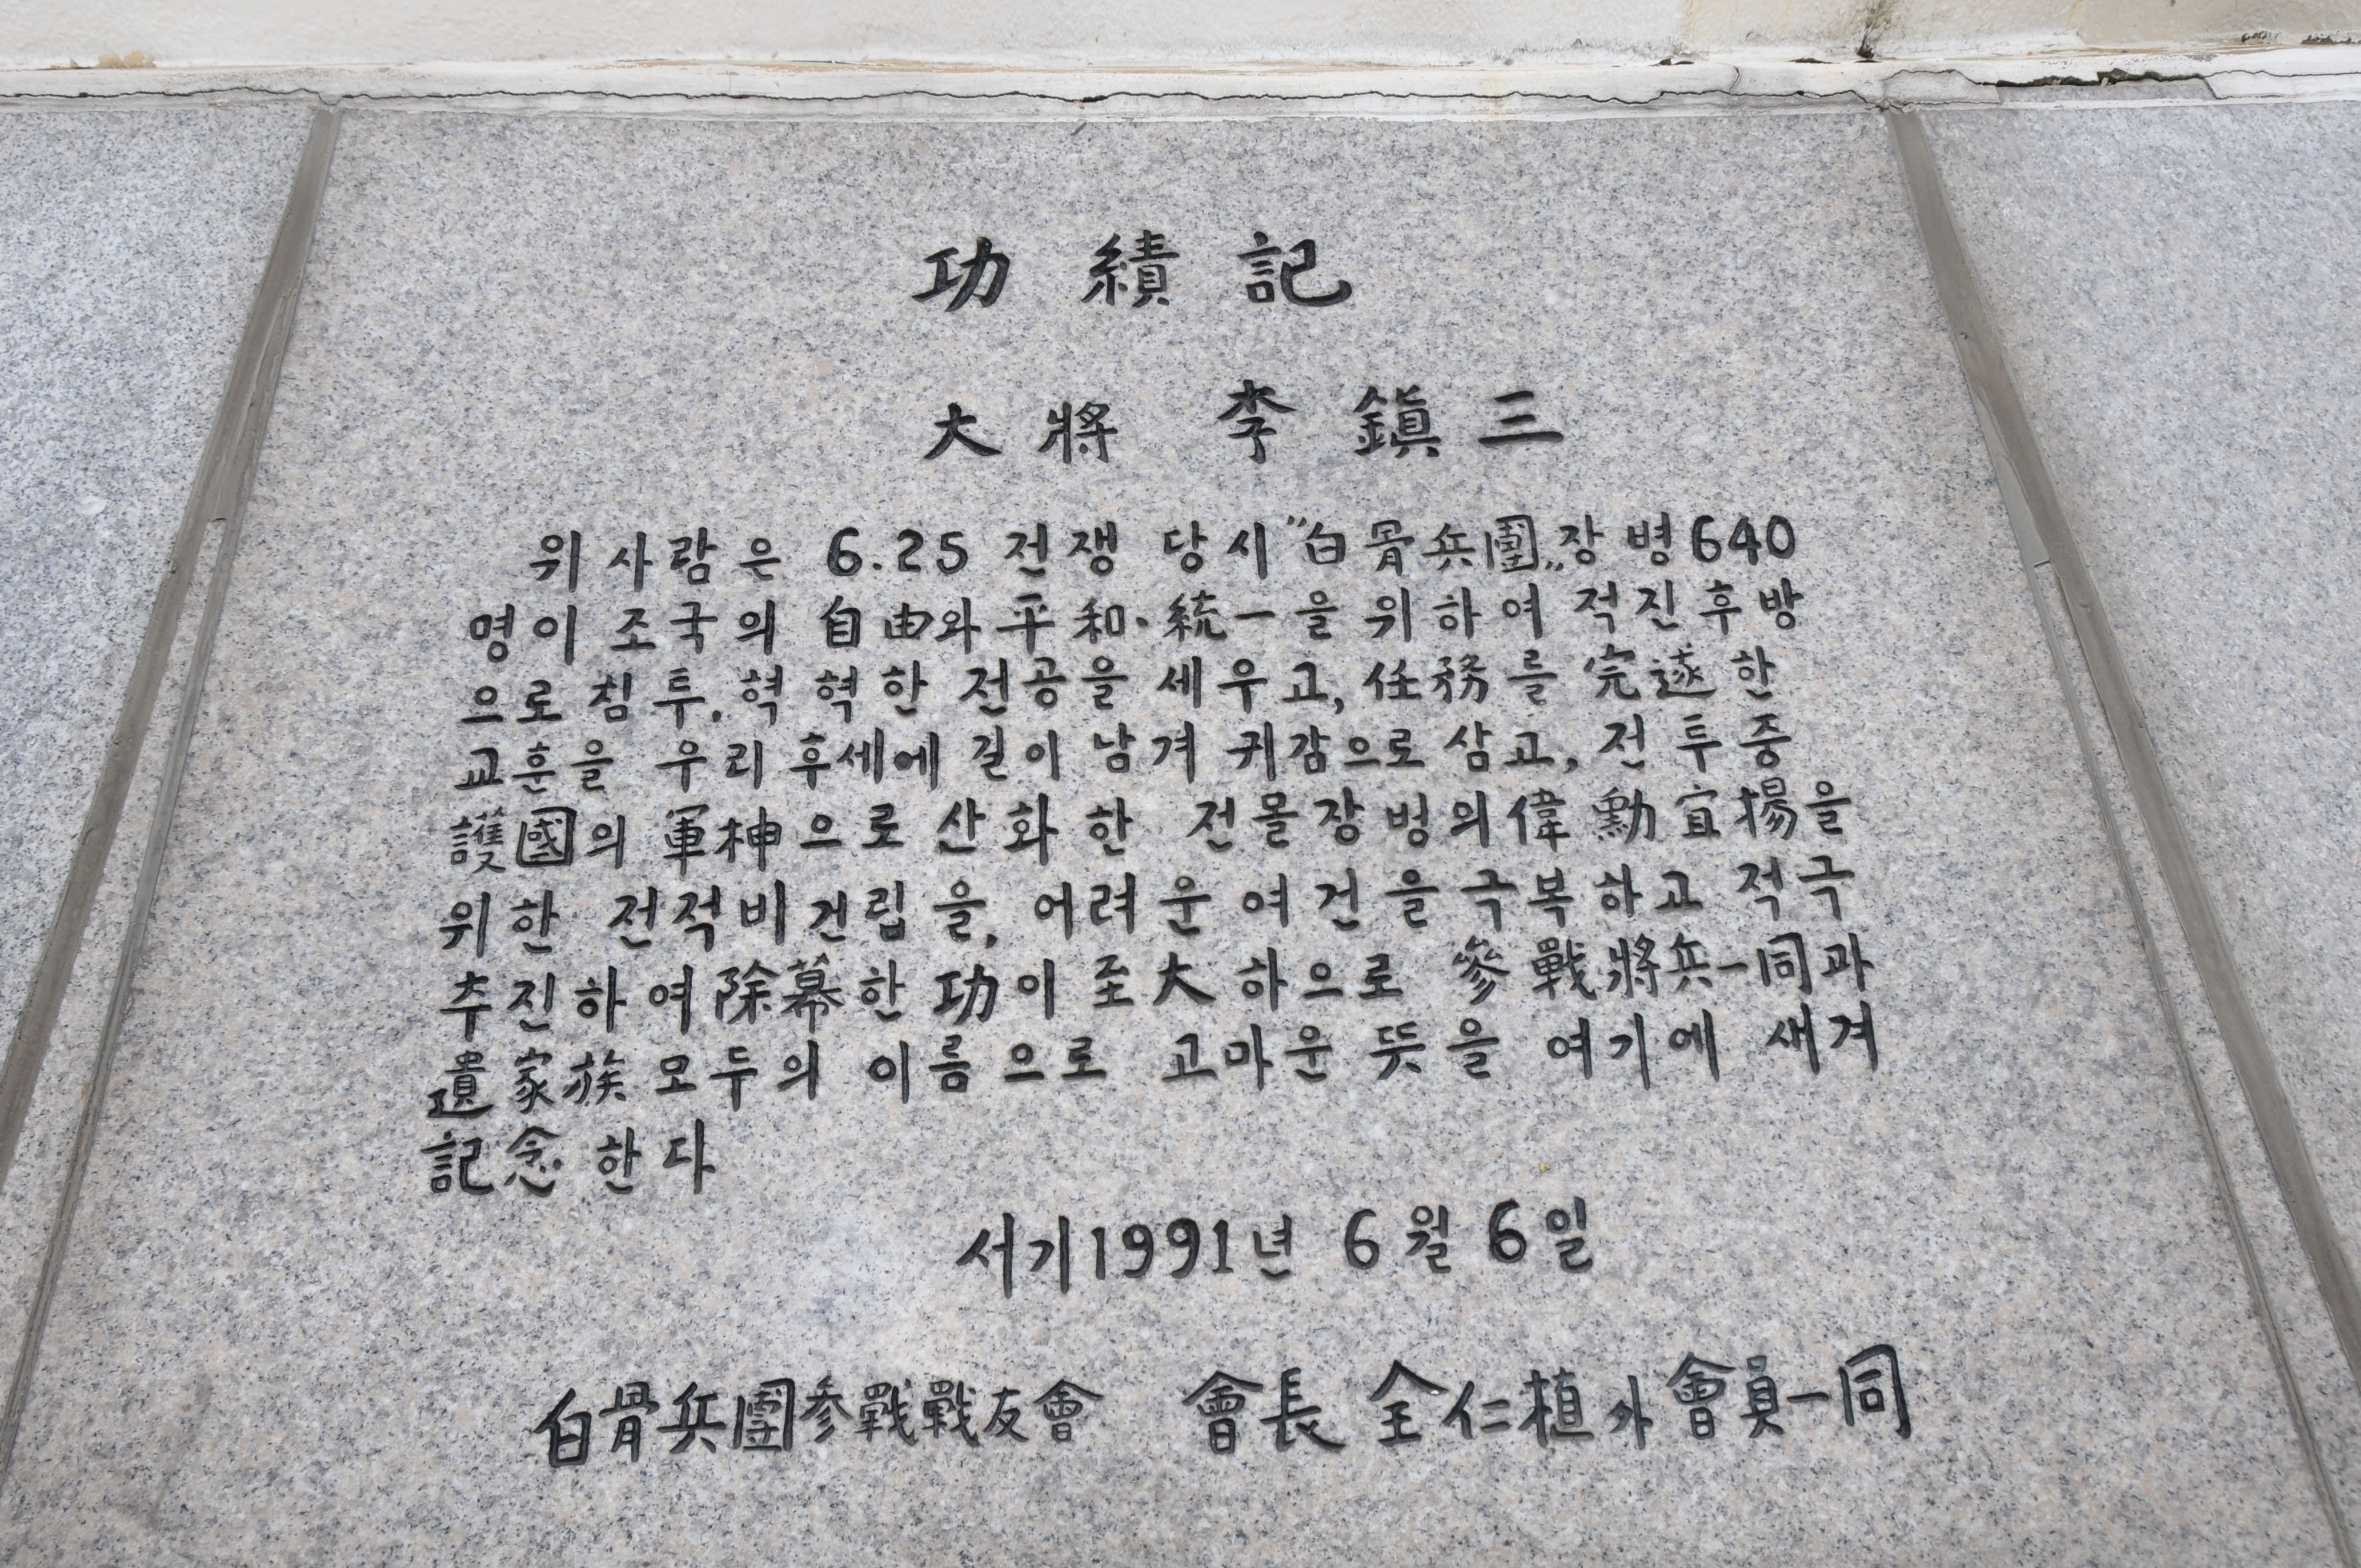 功績記
大將 李鎭三
위 사람은 6.25 전쟁 당시 "白骨兵團" 장병 640
명이 조국의 自由와 平和·統一을 위하여 적진후방
으로 침투, 혁혁한 전공을 세우고, 任務를 完遂한
교훈을 우리 후세에 길이 남겨 귀감으로 삼고, 전투중
護國의 軍神으로 산화한 전몰장병의 偉勳宣揚을
위한 전적비건립을, 어려운 여건을 극복하고 적극
추진하여 除幕한 功이 至大하으로 參戰將兵一同과
遺家族 모두의 이름으로 고마운 뜻을 여기에 새겨
記念한다
서기1991년 6월 6일
白骨兵團参戰戰友會 會長 全仁植外 會員一同